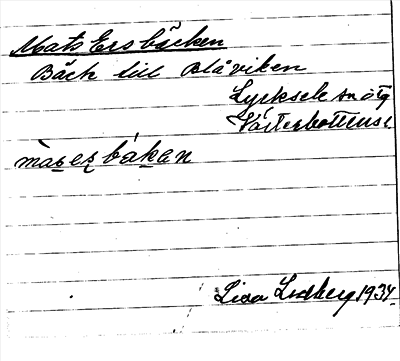 Mats Ersbäcken
Bäck till Blåviken
Lycksele sn
Västerbottens l
Lisa Lidberg 1934